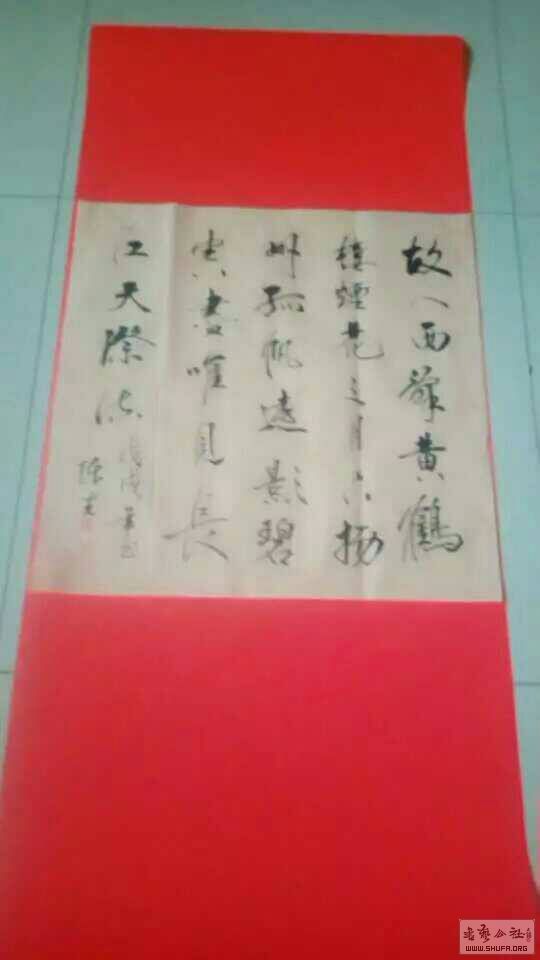 故人西辞黄鹤
楼烟花三月下扬
州孤帆远影碧
空尽唯见長
江天際流戊戌
陈
书艺公社
WWW.SHUFA.ORG